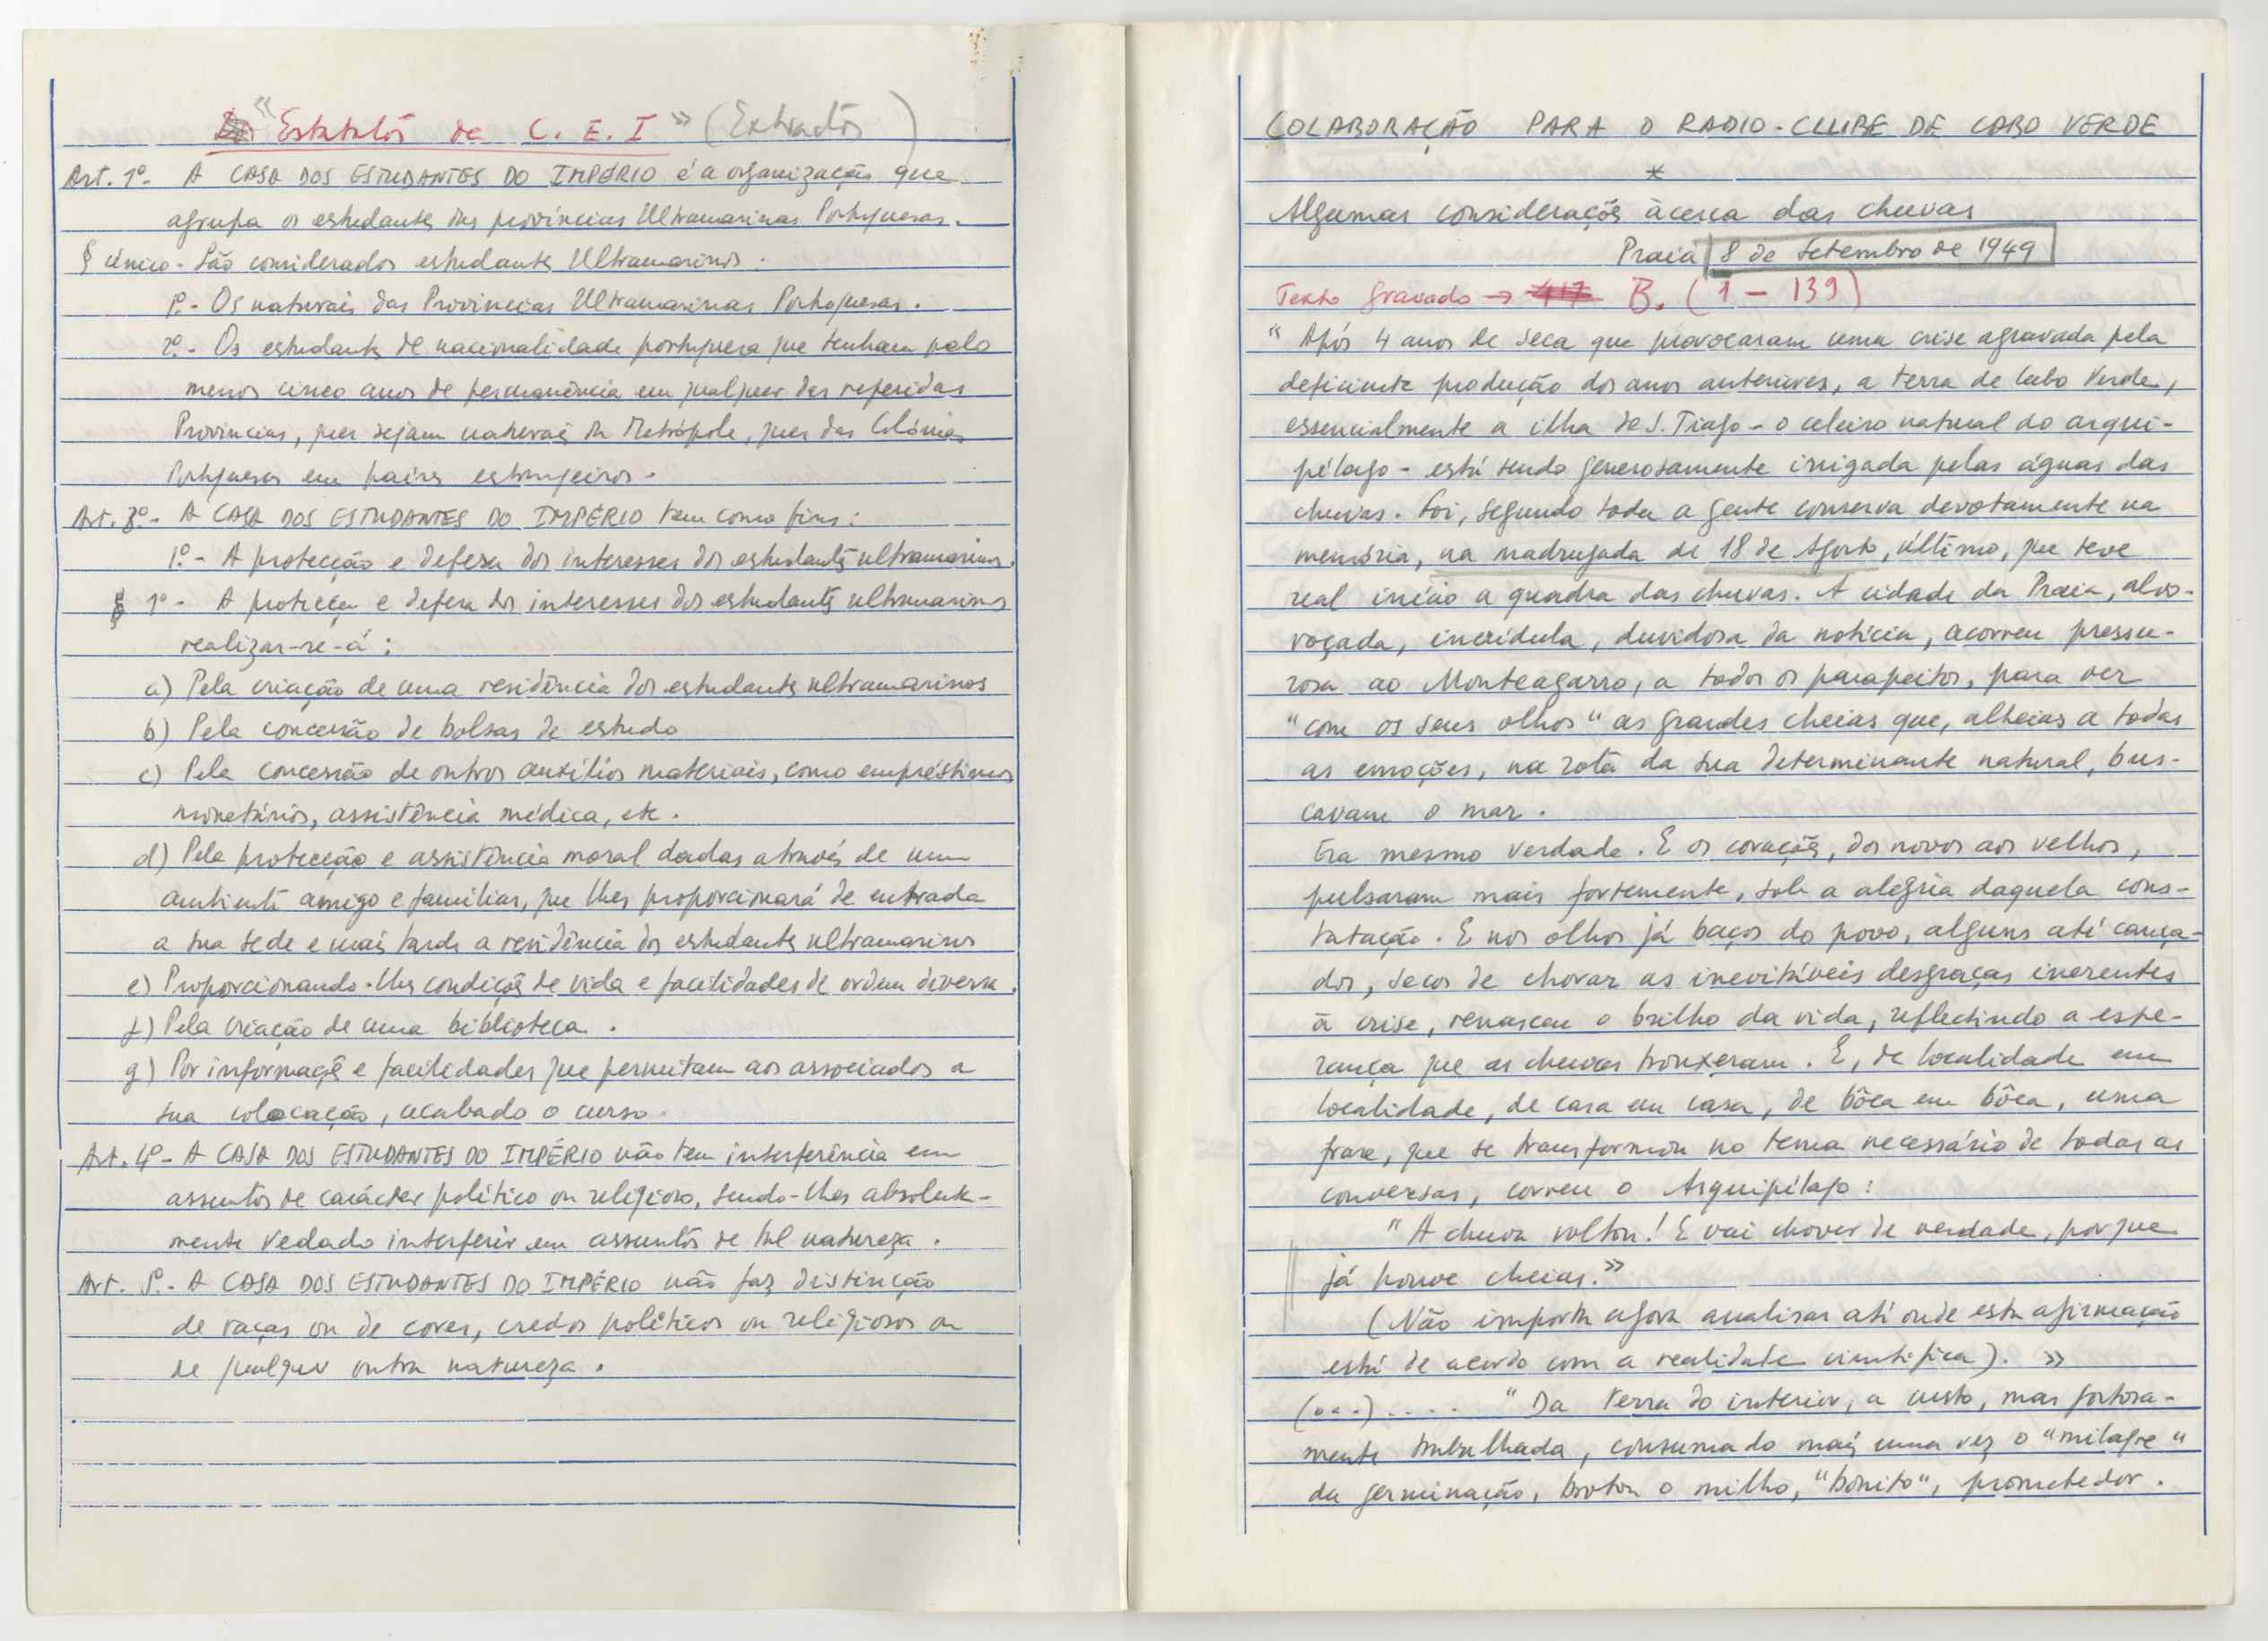 « Estatutos da C. E. I » (Extractos)
Art. 1º- A CASA DOS ESTUDANTES DO IMPÉRIO é a organização que
agrupa os estudantes das províncias Ultramarinas Portuguesas.
§ único - São considerados estudantes Ultramarinos:
1º- Os naturais das Províncias Ultramarinas Portuguesas.
2º- Os estudantes de nacionalidade portuguesa que tenham pelo
menos cinco anos de permanência em qualquer das referidas
Províncias, quer sejam naturais da Metrópole, quer das Colónias
Portuguesas em países estrangeiros.
Art. 3º- A CASA DOS ESTUDANTES DO IMPÉRIO tem como fins:
1º- A protecção e defesa dos interesses dos estudantes ultramarinos.
§ 1º - A protecção e defesa dos interesses dos estudantes ultramarinos
realizar-se-á:
a) Pela criação de uma residência dos estudantes ultramarinos
b) Pela concessão de bolsas de estudo
c) Pela concessão de outros auxílios materiais, como empréstimos
monetários, assistência médica, etc.
d) Pela protecção e assistência moral dadas através de um
ambiente amigo e familiar, que lhes proporcionará de entrada
a sua sede e mais tarde a residência dos estudantes ultramarinos
e) Proporcionando-lhes condições de vida e facilidades de ordem diversa.
f) Pela criação de uma biblioteca.
g) Por informações e facilidades que permitam aos associados a
sua colocação, acabado o curso.
Art. 4º- A CASA DOS ESTUDANTES DO IMPÉRIO não tem interferência em
assuntos de carácter político ou religioso, sendo-lhes absoluta-
mente vedado interferir em assuntos de tal natureza.
Art. 5º- A CASA DOS ESTUDANTES DO IMPÉRIO não faz distinção
de raças ou de cores, credos políticos ou religiosos ou
de qualquer outra natureza.
COLABORAÇÃO PARA O RADIO-CLUBE DE CABO VERDE
*
Algumas considerações àcerca das chuvas
Praia 8 de Setembro de 1949
Texto gravado → B. (1 - 139)
"Após 4 anos de seca que provocaram uma crise agravada pela
deficiente produção dos anos anteriores, a terra de Cabo Verde,
essencialmente a ilha de S. Tiago - o celeiro natural do arqui-
pélago - está sendo generosamente irrigada pelas águas das
chuvas. Foi, segundo toda a gente conserva devotamente na
memória, na madrugada de 18 de Agosto, último, que teve
real início a quadra das chuvas. A cidade da Praia, alvo-
roçada, incrédula, duvidosa da notícia, acorreu pressu-
rosa ao Monteagarro, a todos os parapeitos, para ver
"com os seus olhos" as grandes cheias que, alheias a todas
as emoções, na rota da sua determinante natural, bus-
cavam o mar.
Era mesmo verdade. E os corações, dos novos aos velhos,
pulsaram mais fortemente, sob a alegria daquela cons-
tatação. E nos olhos já baços do povo, alguns até cança-
dos, secos de chorar as inevitáveis desgraças inerentes
à crise, renasceu o brilho da vida, reflectindo a espe-
rança que as chuvas trouxeram. E, de localidade em
localidade, de casa em casa, de bôca em bôca, uma
frase, que se transformou no tema necessário de todas as
conversas, correu o Arquipélago:
"A chuva voltou! E vai chover de verdade, porque
já houve cheias.»
(Não importa agora analisar até onde esta afirmação
está de acordo com a realidade científica). »
(...) .... "Da terra do interior, a custo, mas
trabalhada, consumado mais uma vez o "milagre"
da germinação, brotou o milho, "bonito", prometedor.